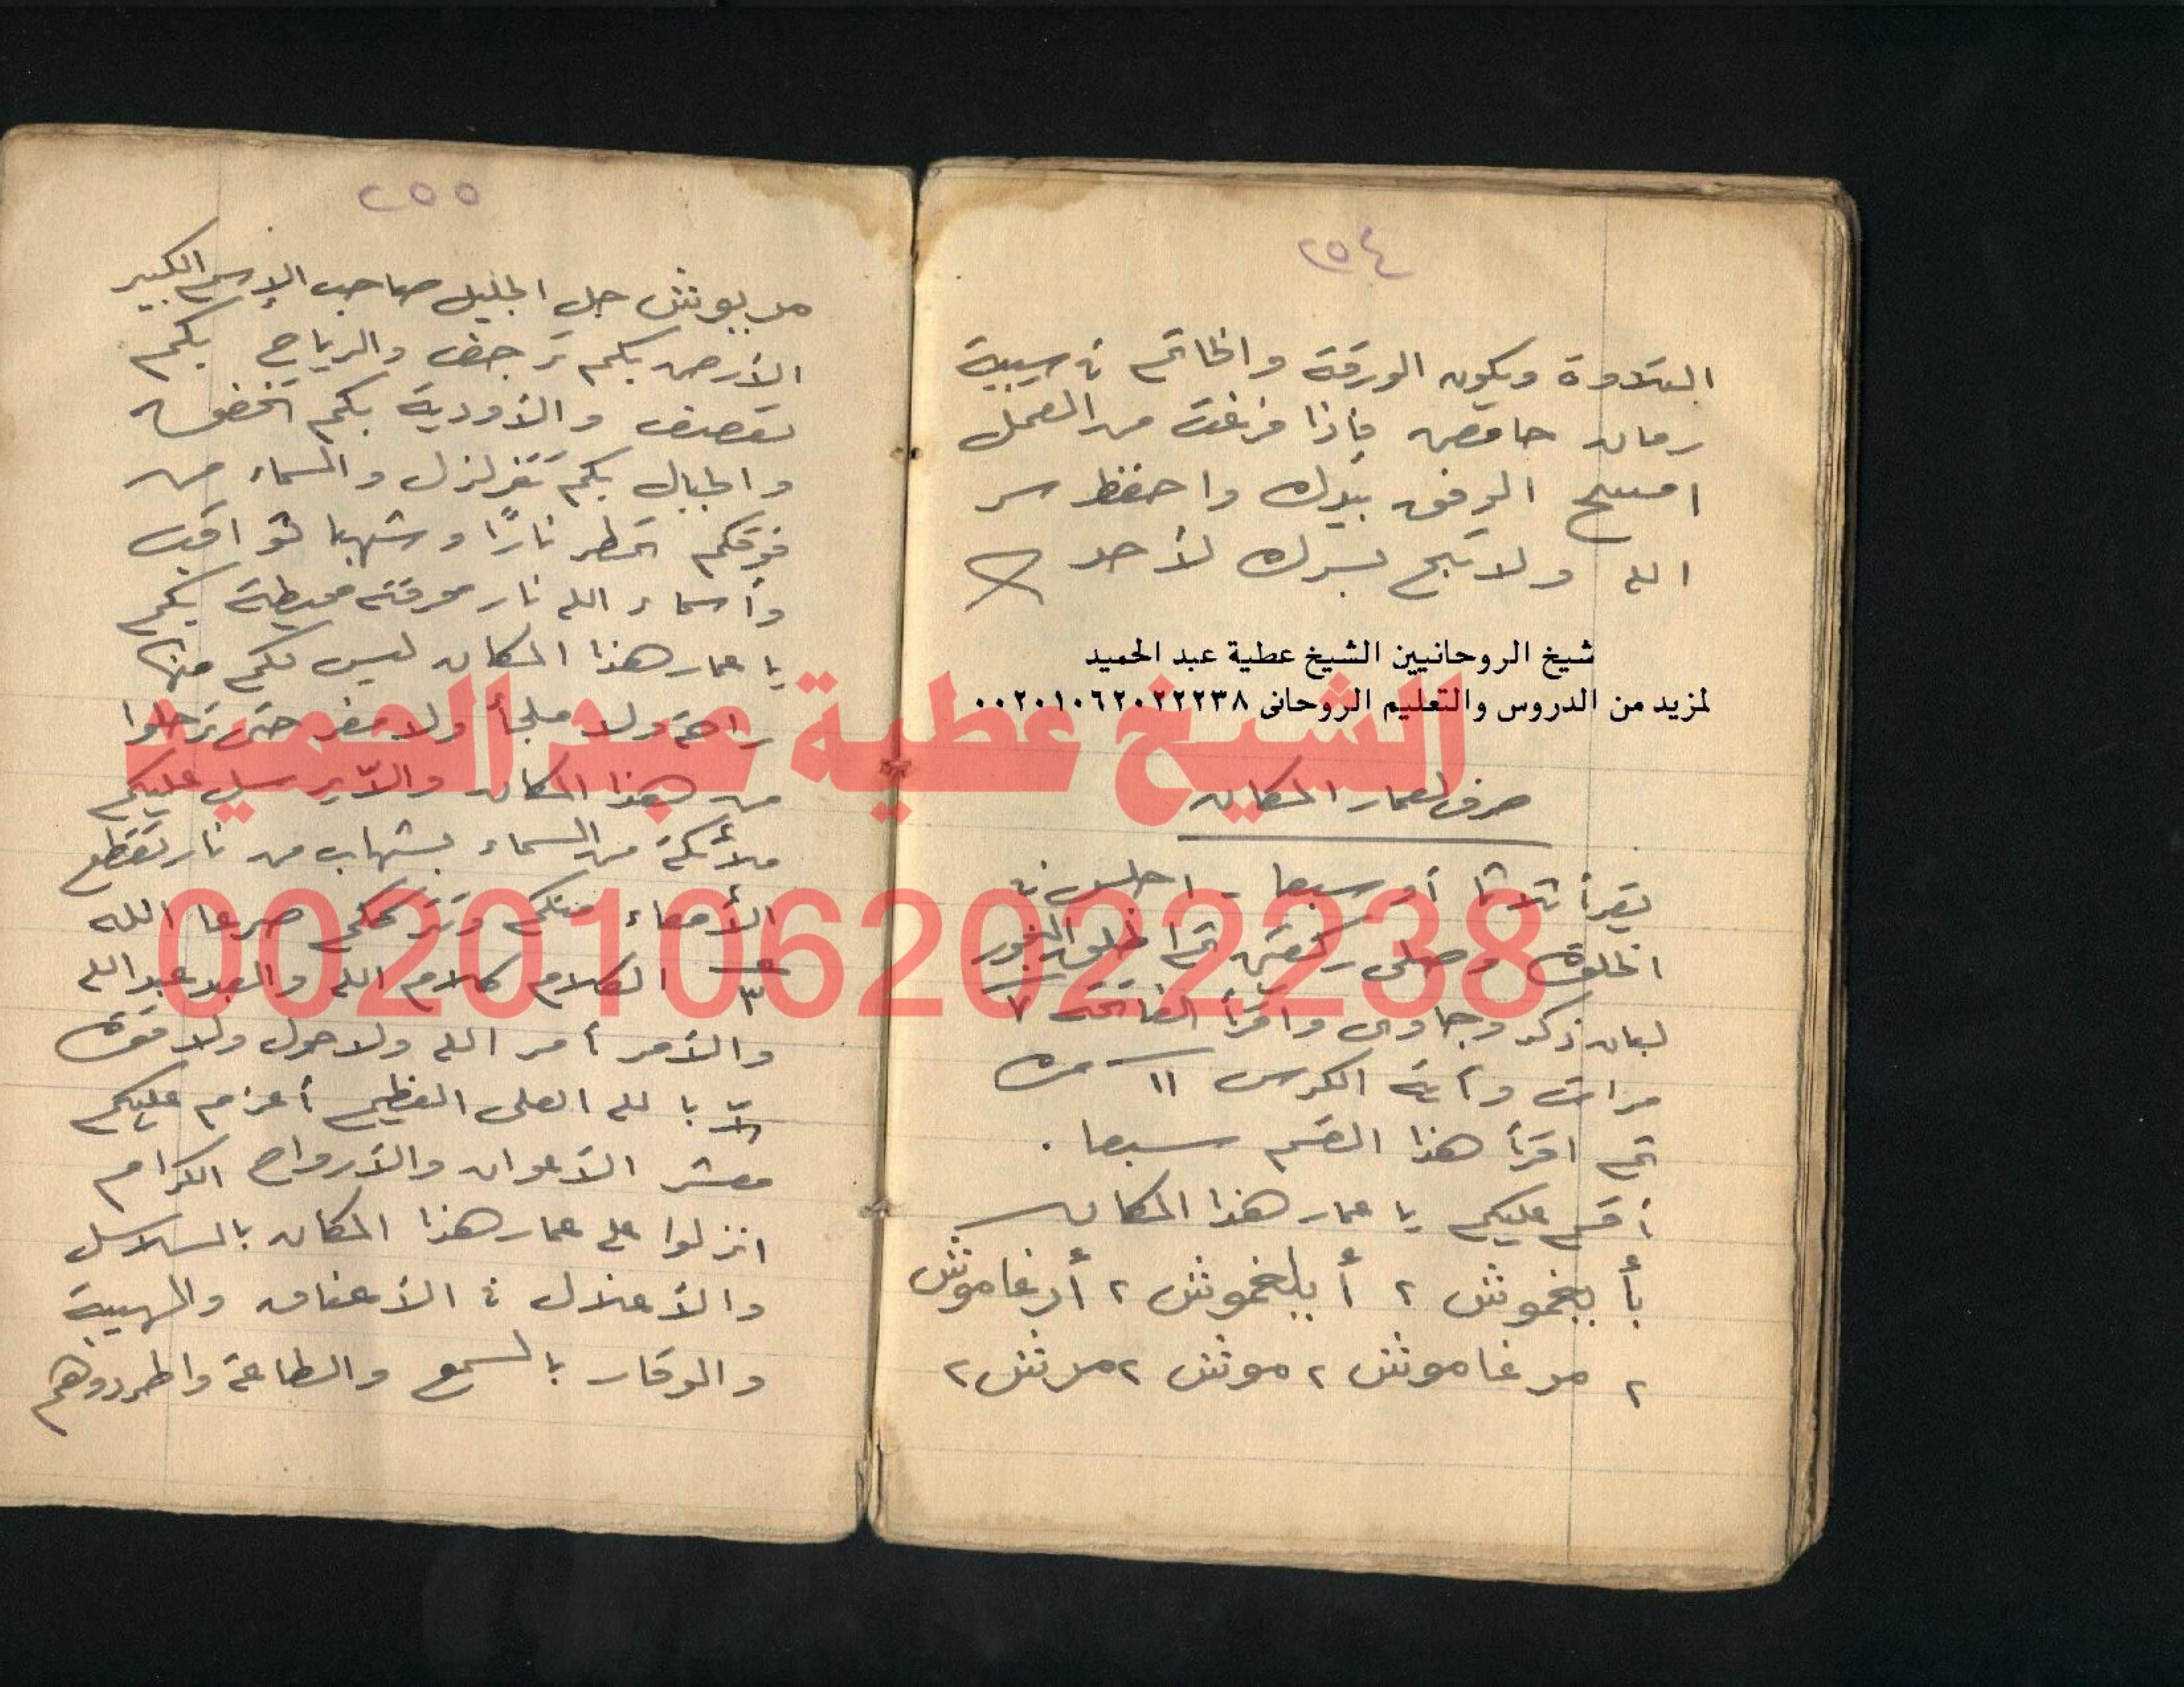 ٢٥٤
التلاوة ويكون الورقة والخاتم في سيبية
رمان حامض فإذا فرغت من العمل
امسح الوفق بيدك واحفظ سر
الله ولا تبح بسرك لأحد
شيخ الروحانيين الشيخ عطية عبد الحميد
لمزيد من الدروس والتعليم الروحانى ٠٠٢٠١٠٦٢٠٢٢٢٣٨
الشيخ عطية عبد الحميد
صرف لعمار المكان
يقرأ ثلاثا أو سبعا - اجلس في
الخلوة وصلى ركعتين ثم اطلق البخور
لبان ذكر وجاوى واقرأ الفاتحة ٧
مرات وآية الكرسى ١١ مرة
ثم اقرأ هذا القسم سبعا .
أقسم عليكم يا عمار هذا المكان
بأ بيغموش ٢ أ بلغموش ٢ أرغاموش
٢ مرغاموش ٢ موش ٢ مرش ٢
00201062022238
٢٥٥
مربيوش جل الجليل صاحب الإسم الكبير
الأرض بكم ترجف والرياح بكم
تعصف والأودية بكم
والجبال بكم تتزلزل والسماء من
فوقكم تمطر نارًا وشهبا ثواقب
وأسماء الله نار محرقة محيطة بكم
يا عمار هذا المكان ليس لكم منها
راحة ولا ملجأ ولا مفر حتى ترحلوا
من هذا المكان والّا يرسل عليكم
ملائكة من السماء بشهاب من نار تقطع
الأمعاء منكم وتترككم صرعا الله
٣ الكلام كلام الله والعبد عبد الله
والأمر أمر الله ولا حول ولا قوة
إلّا بالله العلى العظيم أعزم عليكم
معشر الأعوان والأرواح الكرام
انزلوا على عمار هذا المكان بالسلاسل
والأغلال في الأعناق والهيبة
والوقار بالسمع والطاعة واطردوهم